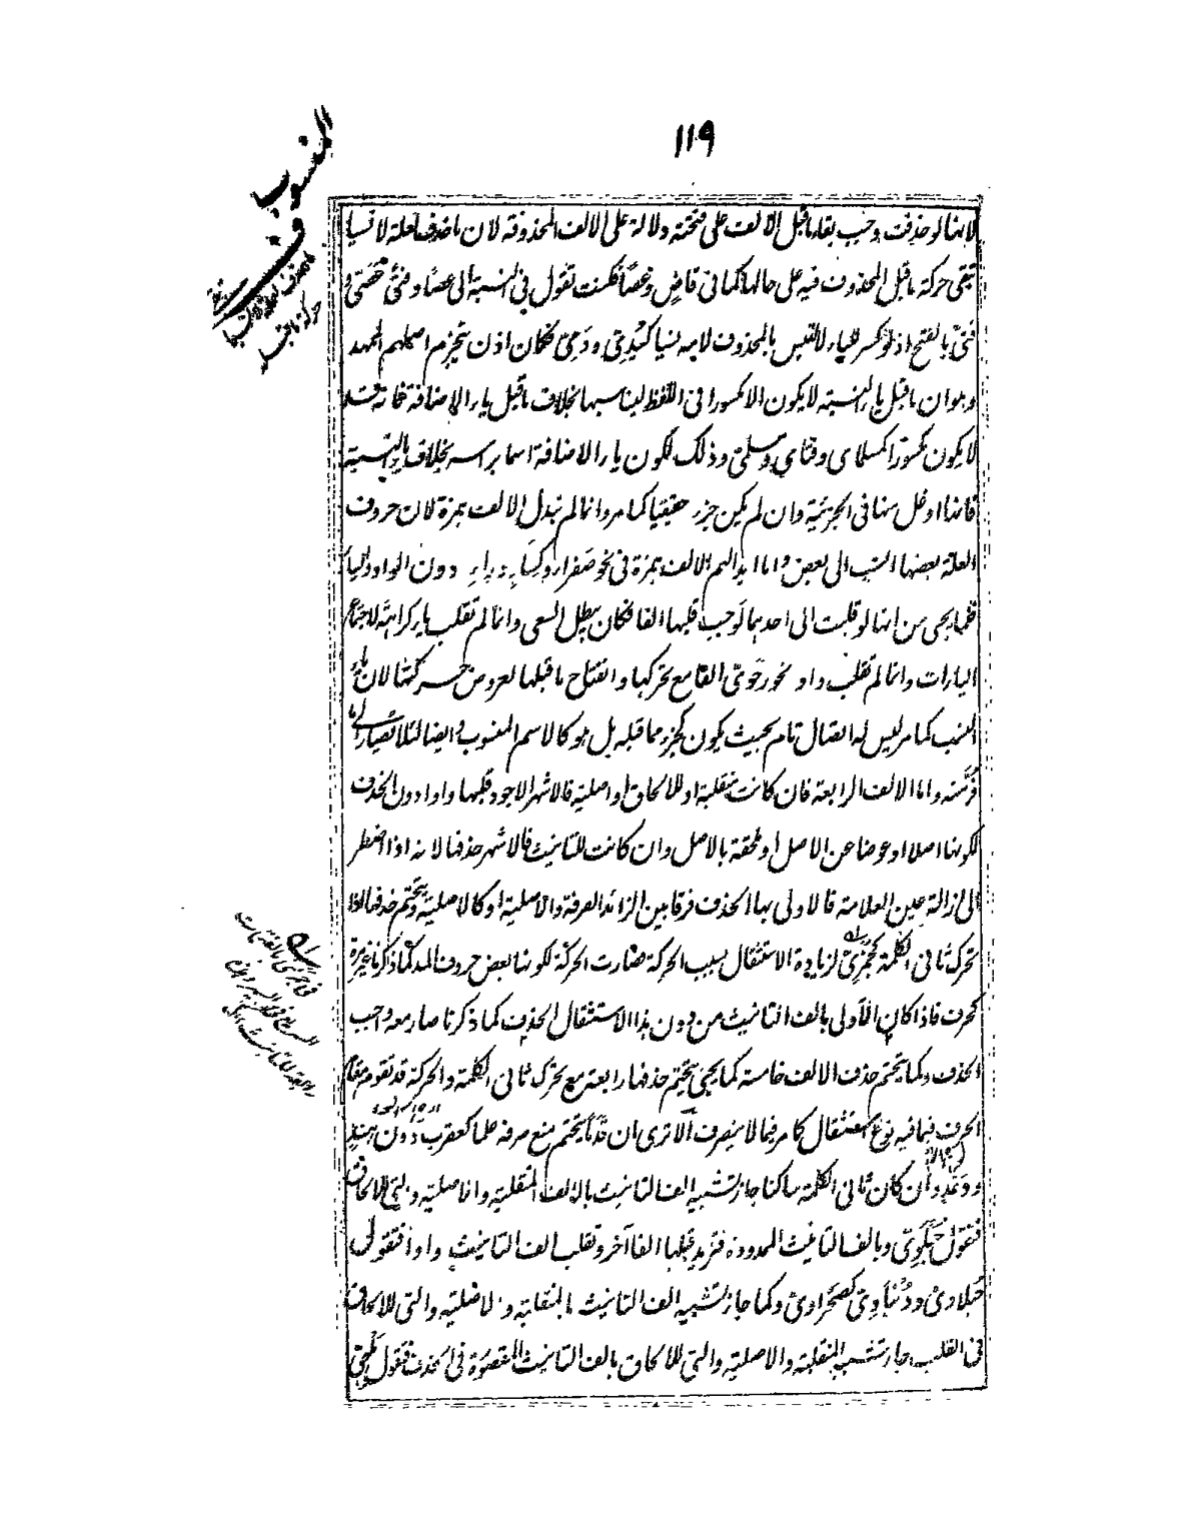 ١١٩
المنسوب
لانها لو حذفت وجب بقاء ما قبل الالف على فتحته دلالة على الالف المحذوفة لان ما حذف لعلة لا نسيا
تبقى حركة ما قبل المحذوف فيه على حالها كما فى قاضٍ وعصًا فكنت تقول فى النسبة الى عصًا وفتى عصَىّ و
فتَىّ بالفتح اذ لو كسر للياء لالتبس بالمحذوف لامه نسيا كيَدِىّ ودَمِىّ فكان اذن ينخرم اصلهم الممهد
وهو ان ما قبل ياء النسبة لا يكون الا مكسورا فى اللفظ ليناسبها بخلاف ما قبل ياء الاضافة فانه قد
لا يكون مكسورًا كمسلماى وفتاى ومسلمىّ وذلك لكون ياء الاضافة اسما برأسه بخلاف ياء النسبة
فانها اوغل منها فى الجزئية وان لم يكن جزء حقيقيا كما مر وانما لم تبدل الالف همزة لان حروف
العلة بعضها انسب الى بعض واما ابدالهم الالف همزة فى نحو صفراء وكساء ورداء دون الواو والياء
فلما يجىء من انها لو قلبت الى احدهما لوجب قلبها الفا فكان يبطل السعى وانما لم تقلب ياء كراهة لاجتماع
الياءات وانما لم تقلب واو نحو رحوىّ الفا مع تحركها وانفتاح ما قبلها لعروض حركتها لان ياء
النسب كما مر ليس له اتصال تام بحيث يكون كجزء مما قبله بل هو كالاسم المنسوب وايضا لئلا يصار الى ما
فرّ منه واما الالف الرابعة فان كانت منقلبة او للالحاق او اصلية فالاشهر الاجود قلبها واوا دون الحذف
لكونها اصلا او عوضا عن الاصل او ملحقة بالاصل وان كانت للتانيث فالاشهر حذفها لانه اذا اضطر
الى ازالة عين العلامة فالاولى بها الحذف فرقا بين الزائد الصرفة والاصلية او كالاصلية ويتحتم حذفها اذا
تحرك ثانى الكلمة كجمزىّ لزيادة الاستثقال بسبب الحركة فصارت الحركة لكونها بعض حروف المد كما ذكرنا غير مرة
كحرف فاذا كان الاولى بالف التانيث من دون هذا الاستثقال الحذف كما ذكرنا صار معه واجب
الحذف وكما يتحتم حذف الالف خامسة كما يجىء يتحتم حذفها رابعة مع تحرك ثانى الكلمة والحركة قد تقوم مقام
الحرف فيما فيه نوع استثقال كما مر فيما لا ينصرف الا ترى ان قدَمًا يتحتم منع صرفه علما كعقرب دون هند
ودعد وان كان ثانى الكلمة ساكنا جاز تشبيه الف التانيث بالالف المنقلبة والاصلية والتى للالحاق
فتقول حبلوىّ وبالف التانيث الممدودة فتزيد قبلها الفا آخر وتقلب الف التانيث واوا فتقول
حبلاوىّ ودنياوىّ كصحراوىّ وكما جاز تشبيه الف التانيث بالمنقلبة والاصلية والتى للالحاق
فى القلب جاز تشبيه المنقلبة والاصلية والتى للالحاق بالف التانيث المقصورة فى الحذف فتقول ملهىّ